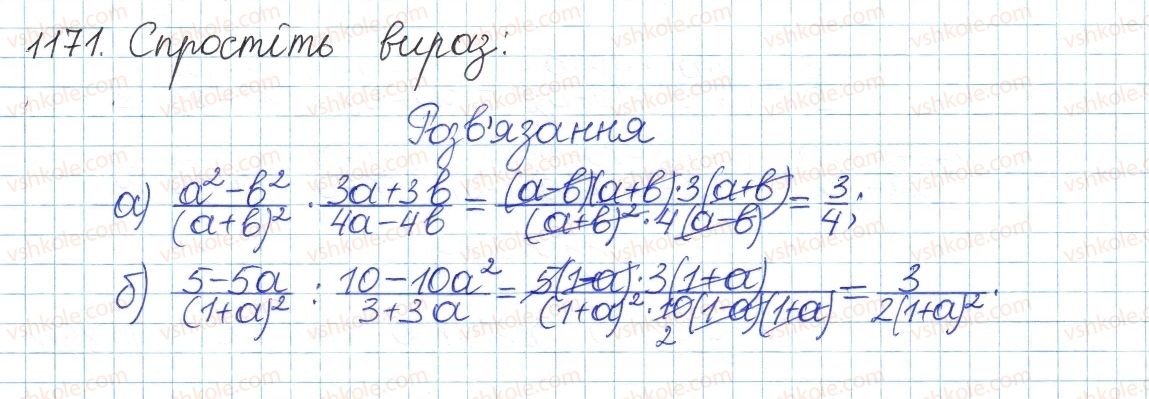 1171. Спростіть вираз:
Розв'язання
а) (a² – b²)/(a+b)² · (3a+3b)/(4a–4b) = ((a–b)(a+b)·3(a+b))/((a+b)²·4(a–b)) = 3/4;
б) (5–5a)/(1+a)² : (10–10a²)/(3+3a) = (5(1–a)·3(1+a))/((1+a)²·10(1–a)(1+a)) = 3/(2(1+a)²).
2